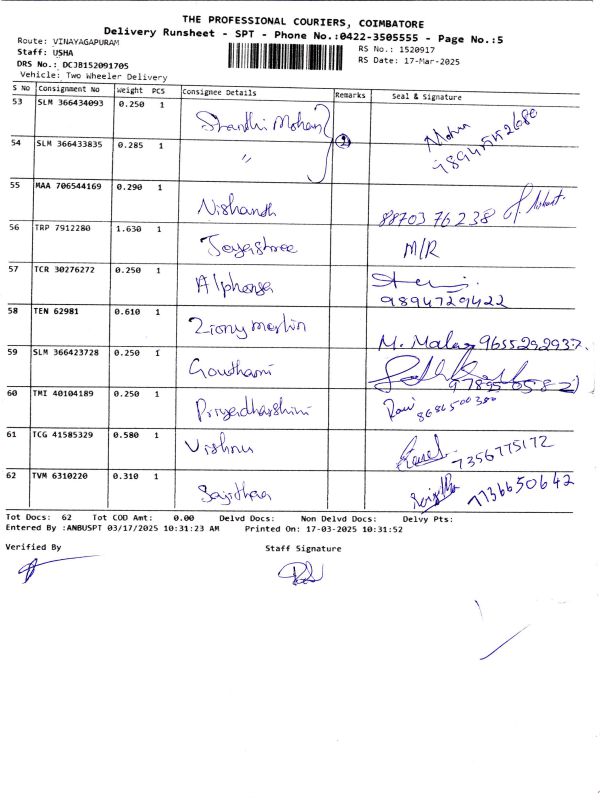 THE PROFESSIONAL COURIERS, COIMBATORE
Delivery Runsheet - SPT - Phone No.:0422-3505555 - Page No.:5
Route: VINAYAGAPURAM
Staff: USHA
RS No.: 1520917
DRS No.: DCJB152091705
RS Date: 17-Mar-2025
Vehicle: Two Wheeler Delivery
S No Consignment No Weight PCS Consignee Details Remarks Seal & Signature
53 SLM 366434093 0.250 1 Shanthi Mohan Mohan
54 SLM 366433835 0.285 1 〃 2
55 MAA 706544169 0.290 1 Nishandh 8870376238
56 TRP 7912280 1.630 1 Jeyashree M/R
57 TCR 30276272 0.250 1 Alphonsa 9894729422
58 TEN 62981 0.610 1 merlin M. Malar 9655292937
59 SLM 366423728 0.250 1 Gowthami
60 TMI 40104189 0.250 1 Priyadharshini Ravi
61 TCG 41585329 0.580 1 Vishnu 7356775172
62 TVM 6310220 0.310 1 Sajithaa 7736650642
Tot Docs: 62 Tot COD Amt: 0.00 Delvd Docs: Non Delvd Docs: Delvy Pts:
Entered By :ANBUSPT 03/17/2025 10:31:23 AM Printed On: 17-03-2025 10:31:52
Verified By Staff Signature